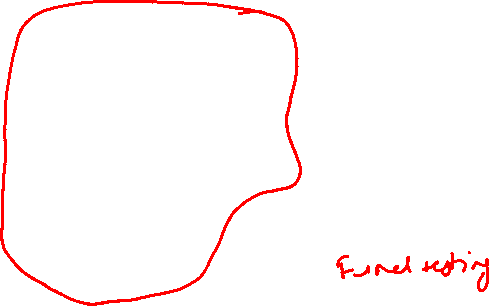 Funel testing